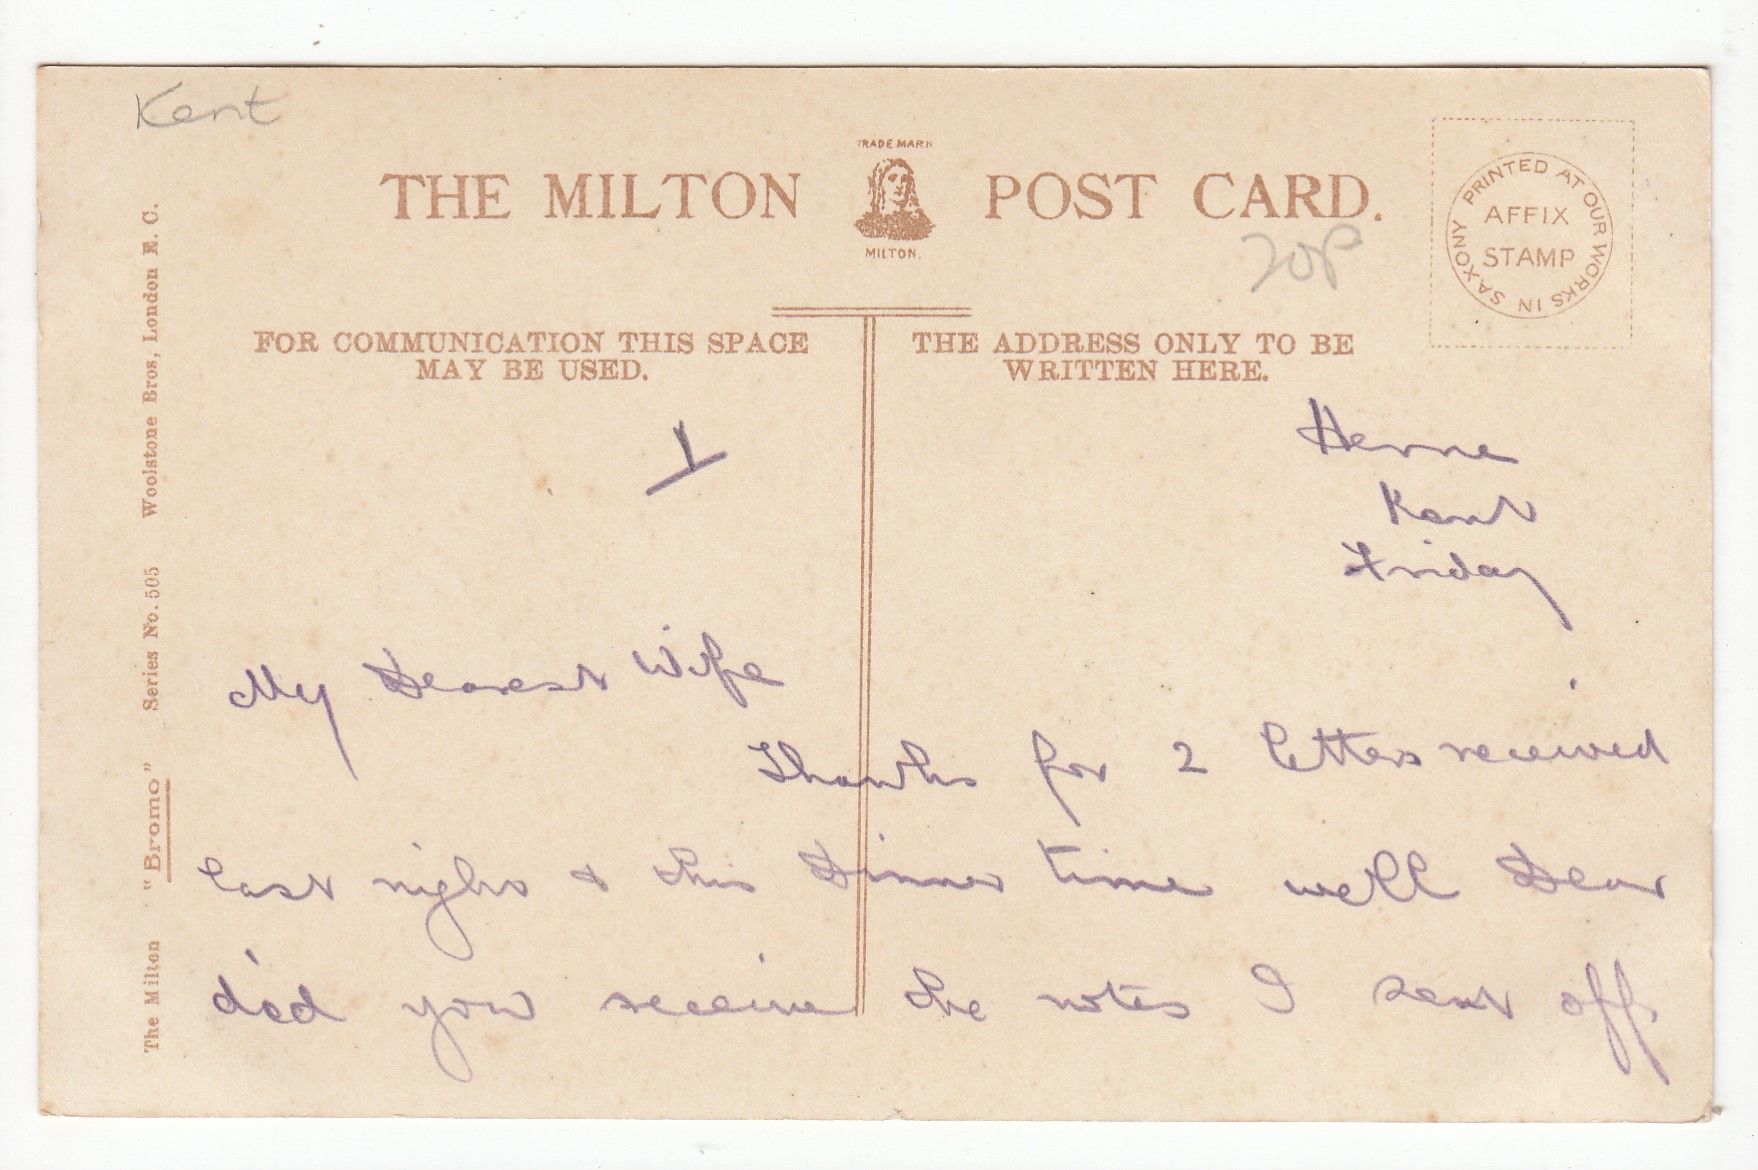 Kent
TRADE MARK
THE MILTON POST CARD.
MILTON.
20P
PRINTED AT OUR WORKS IN SAXONY
AFFIX
STAMP
FOR COMMUNICATION THIS SPACE
MAY BE USED.
THE ADDRESS ONLY TO BE
WRITTEN HERE.
The Milton "Bromo" Series No. 505 Woolstone Bros, London E. C.
1
Herne
Kent
Friday
My Dearest Wife
Thanks for 2 letters received
last night & this Dinner time well Dear
did you receive the notes I sent off